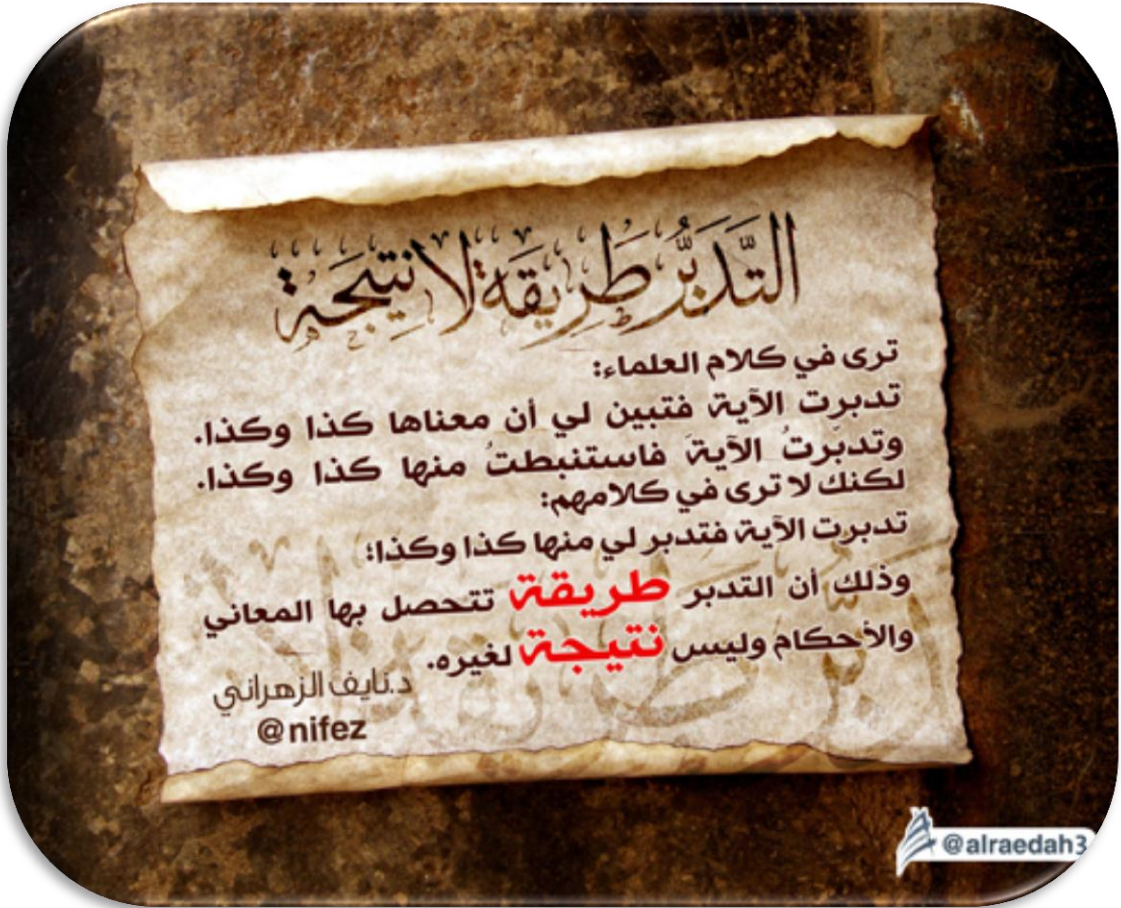 التَّدَبُّرُ طَرِيقَة لا نَتِيجَة
ترى في كلام العلماء:
تدبرت الآية فتبين لي أن معناها كذا وكذا.
وتدبّرتُ الآيةَ فاستنبطتُ منها كذا وكذا.
لكنك لا ترى في كلامهم:
تدبرت الآية فتدبر لي منها كذا وكذا؛
وذلك أن التدبر طريقة تتحصل بها المعاني
والأحكام وليس نتيجة لغيره.
د.نايف الزهراني
@nifez
@alraedah3